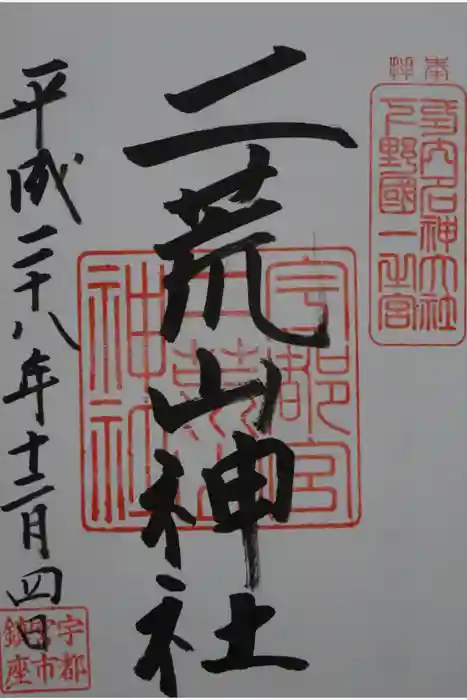 奉拝
式内名神大社
下野國一之宮
二荒山神社
宇都宮
二荒山
神社
平成二十八年十二月四日
宇都
宮市
鎮座